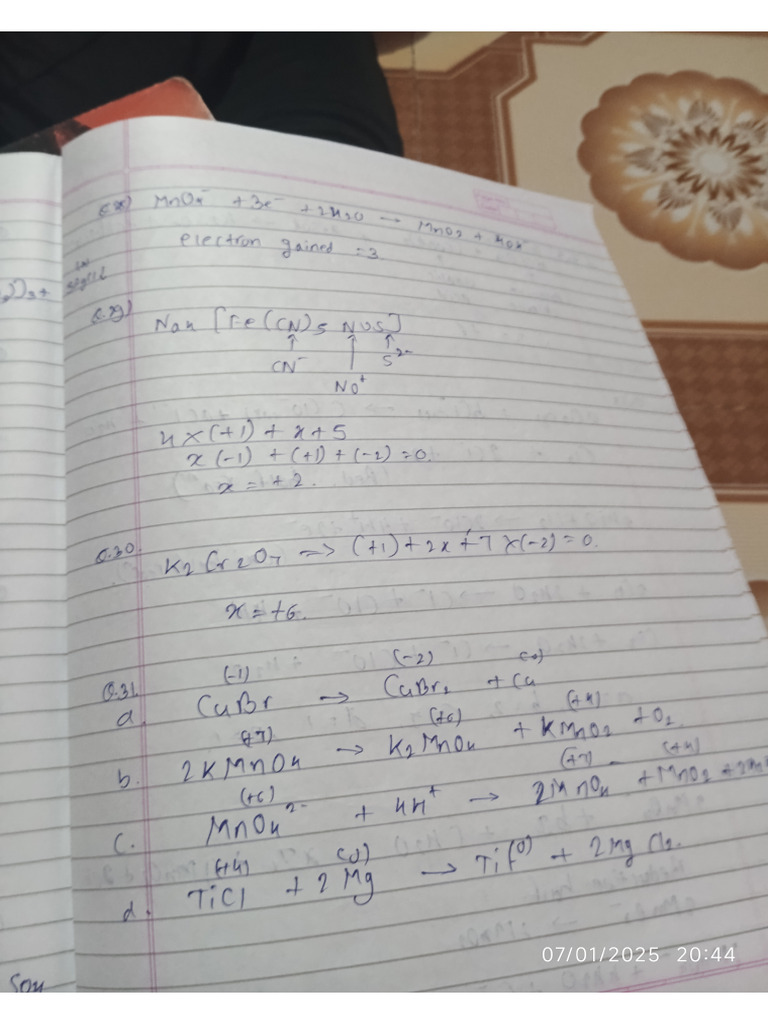 Q.28) MnO4⁻ + 3e⁻ + 2H2O → MnO2 + 4OH⁻
electron gained = 3
Q.29) Na4 [Fe(CN)5 NOS]
CN⁻ S²⁻
NO⁺
4×(+1) + x + 5
x (-1) + (+1) + (-2) = 0.
x = +2.
Q.30. K2 Cr2O7 ⇒ (+1) + 2x + 7 × (-2) = 0.
x = +6.
Q.31. (-1) (-2) (0)
a. CuBr → CuBr2 + Cu
(+7) (+6) (+4)
b. 2KMnO4 → K2MnO4 + KMnO2 + O2
(+6) (+7) (+4)
c. MnO4²⁻ + 4H⁺ → 2MnO4⁻ + MnO2
(+4) (0)
d. TiCl + 2Mg → Ti(0) + 2MgCl2.
07/01/2025 20:44